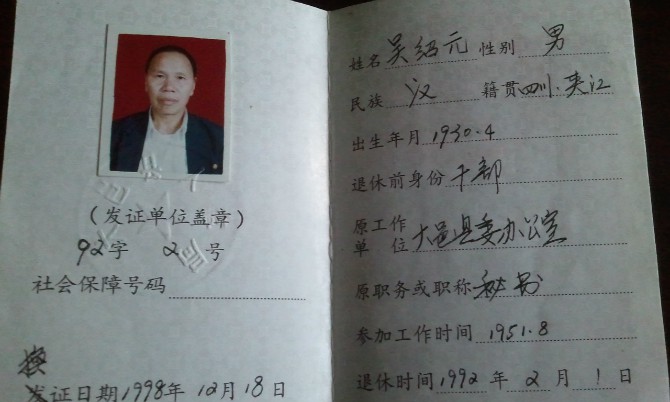 (发证单位盖章)
92字 2号
社会保障号码
换
发证日期1998年12月18日
姓名 吴绍元 性别 男
民族 汉 籍贯 四川·夹江
出生年月 1930.4
退休前身份 干部
原工作
单 位 大邑县委办公室
原职务或职称 秘书
参加工作时间 1951.8
退休时间 1992 年 2 月 1 日